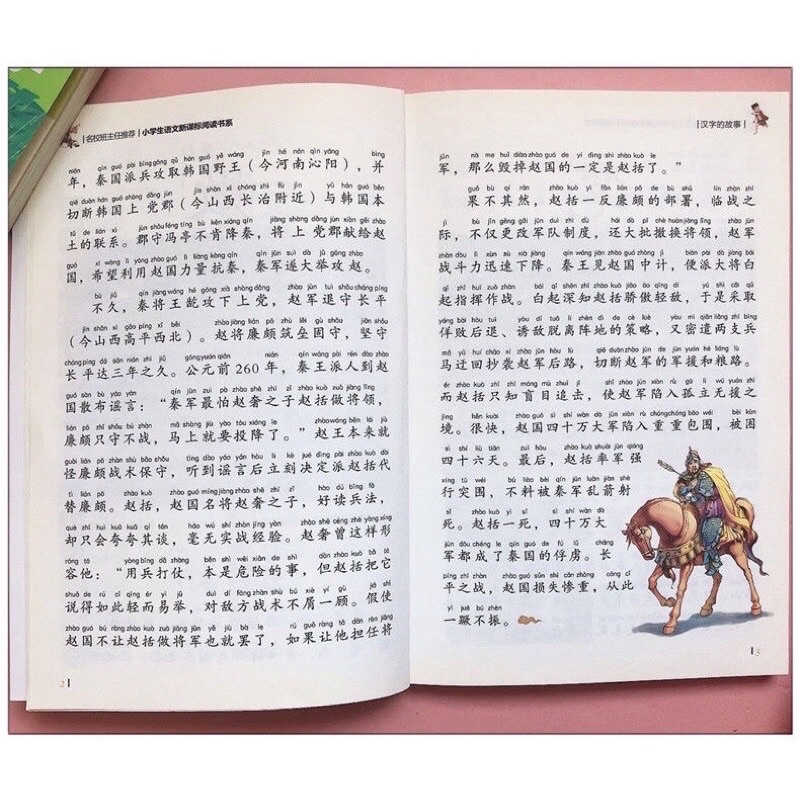 名校班主任推荐 | 小学生语文新课标阅读书系
年，秦国派兵攻取韩国野王（今河南沁阳），并
切断韩国上党郡（今山西长治附近）与韩国本
土的联系。郡守冯亭不肯降秦，将上党郡献给赵
国，希望利用赵国力量抗秦，秦军遂大举攻赵。
不久，秦将王龁攻下上党，赵军退守长平
（今山西高平西北）。赵将廉颇筑垒固守，坚守
长平达三年之久。公元前260年，秦王派人到赵
国散布谣言：“秦军最怕赵奢之子赵括做将领，
廉颇只守不战，马上就要投降了。”赵王本来就
怪廉颇战术保守，听到谣言后立刻决定派赵括代
替廉颇。赵括，赵国名将赵奢之子，好读兵法，
却只会夸夸其谈，毫无实战经验。赵奢曾这样形
容他：“用兵打仗，本是危险的事，但赵括把它
说得如此轻而易举，对敌方战术不屑一顾。假使
赵国不让赵括做将军也就罢了，如果让他担任将
2
汉字的故事
军，那么毁掉赵国的一定是赵括了。”
果不其然，赵括一反廉颇的部署，临战之
际，不仅更改军队制度，还大批撤换将领，赵军
战斗力迅速下降。秦王见赵国中计，便派大将白
起指挥作战。白起深知赵括骄傲轻敌，于是采取
佯败后退、诱敌脱离阵地的策略，又密遣两支兵
马迂回抄袭赵军后路，切断赵军的军援和粮路。
而赵括只知盲目追击，使赵军陷入孤立无援之
境。很快，赵国四十万大军陷入重重包围，被困
四十六天。最后，赵括率军强
行突围，不料被秦军乱箭射
死。赵括一死，四十万大
军都成了秦国的俘虏。长
平之战，赵国损失惨重，从此
一蹶不振。
3